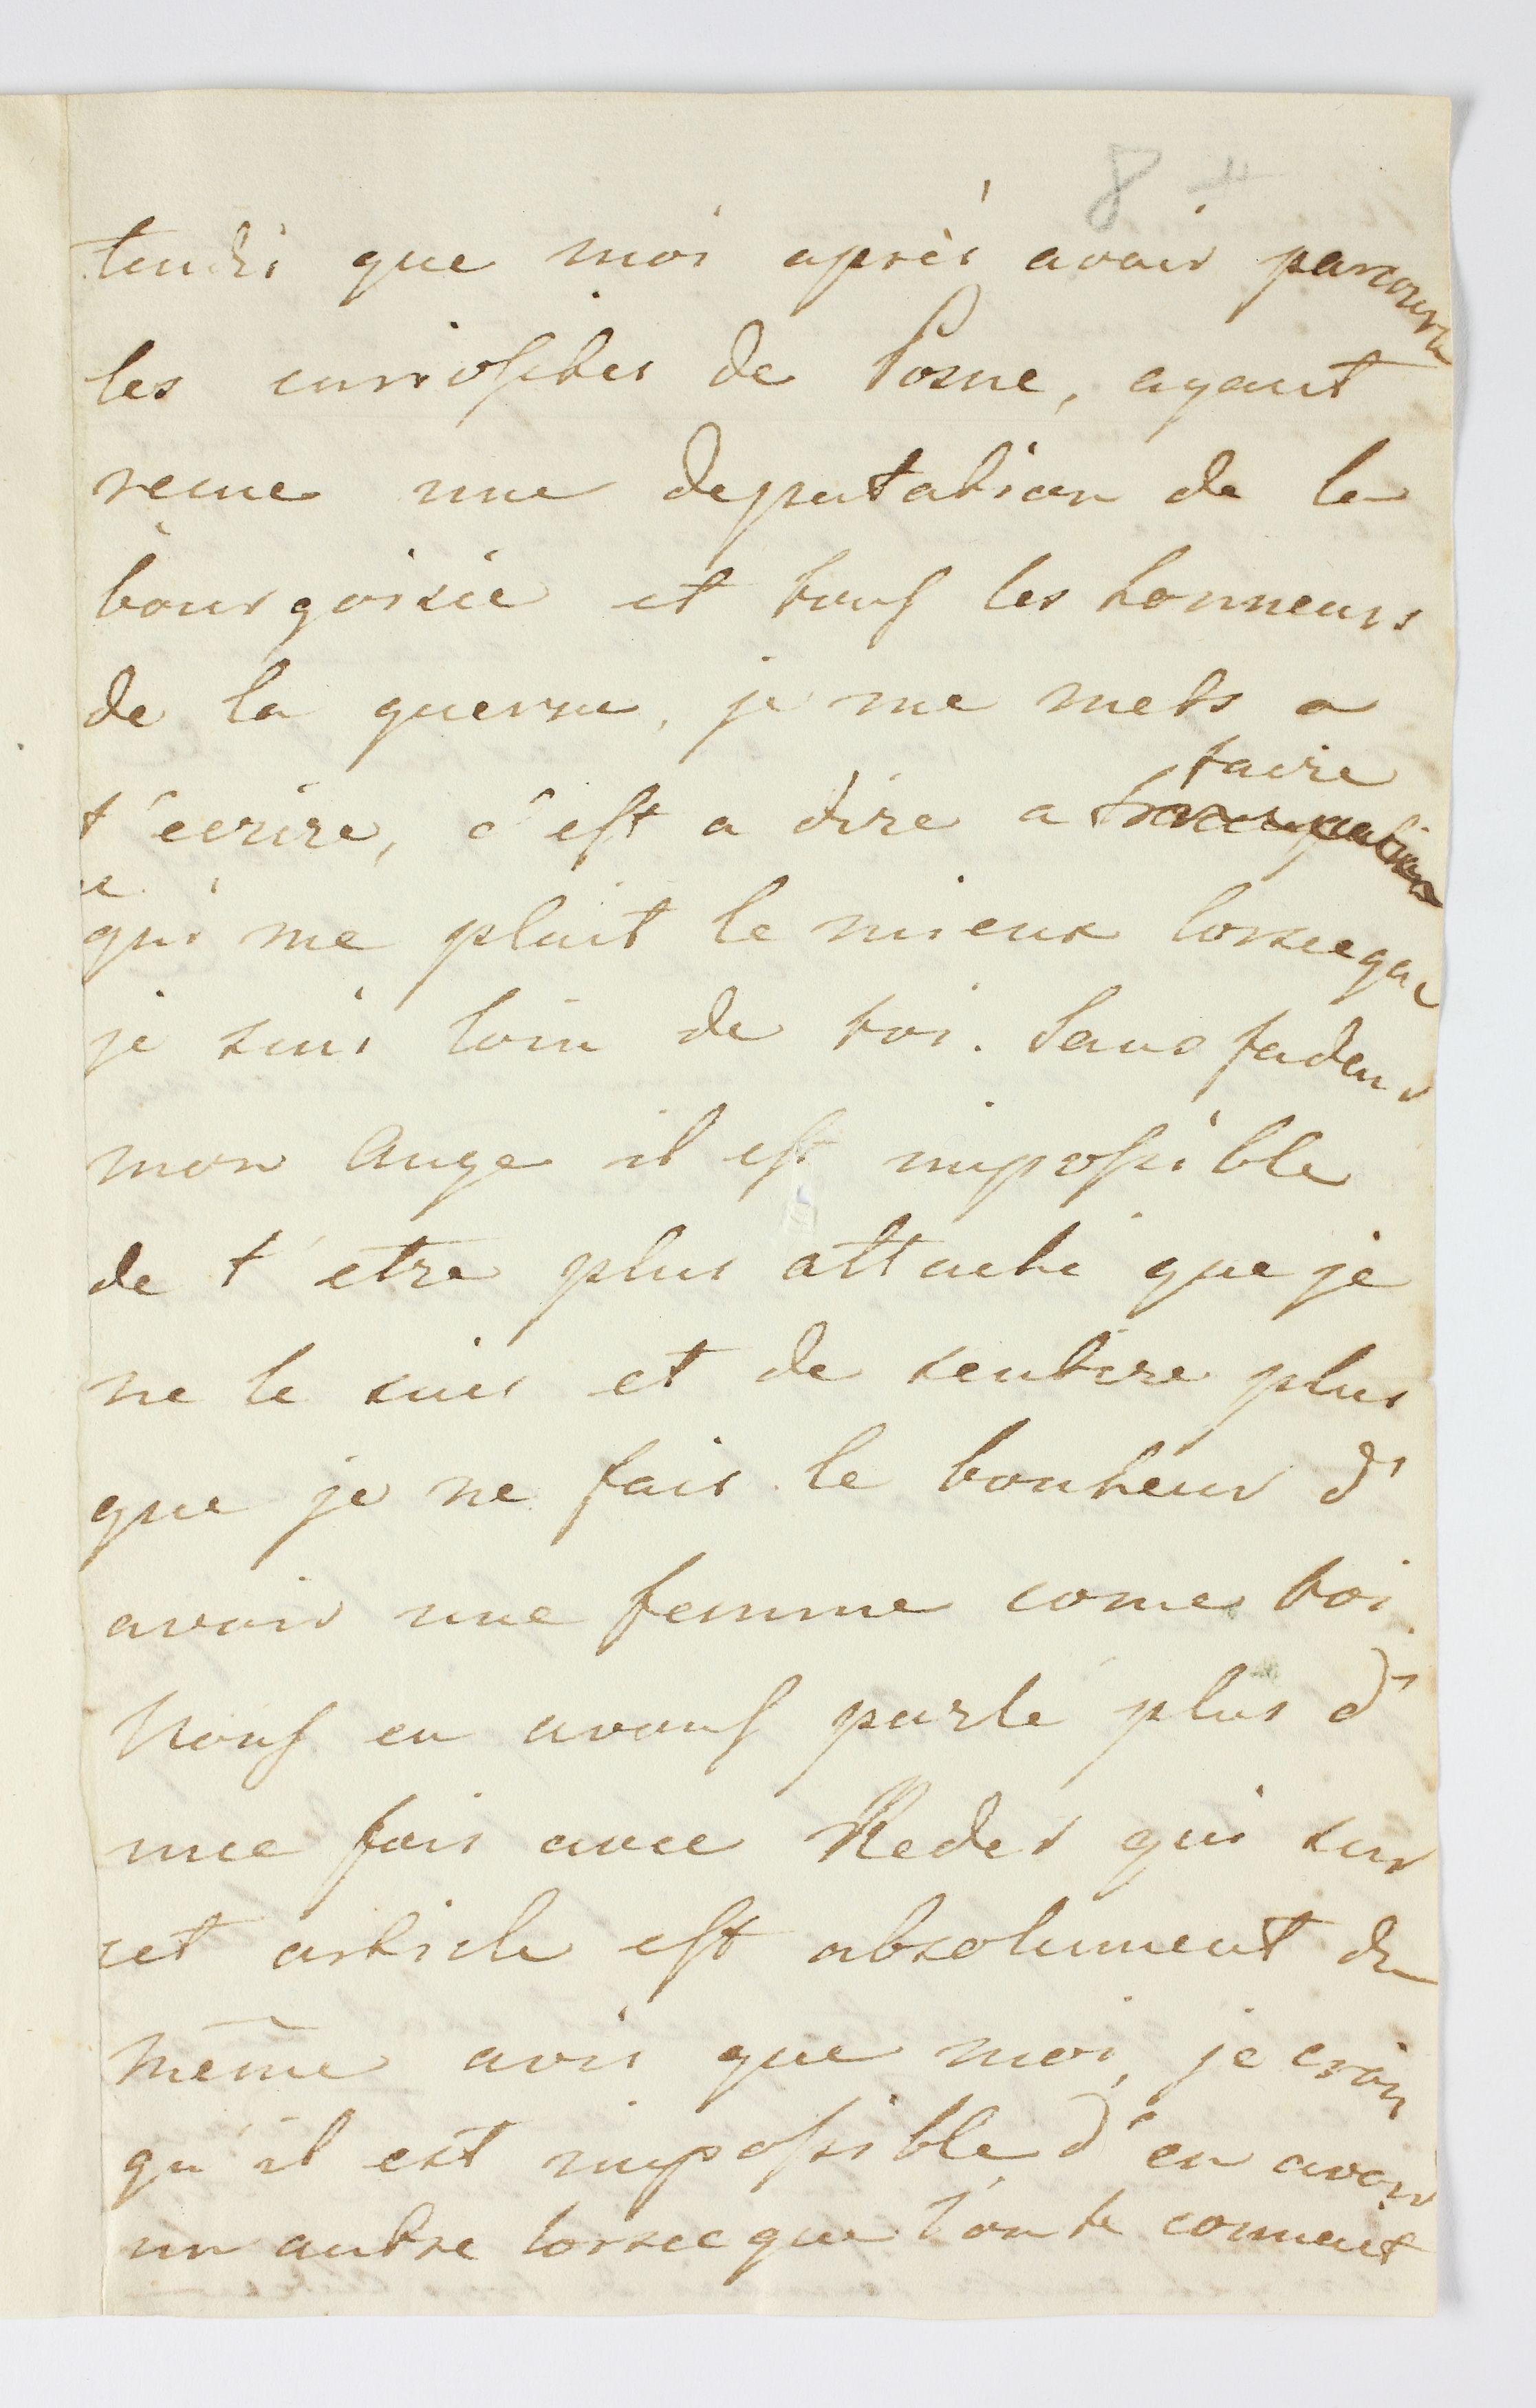 8
tendis que moi après avoir parcouru
les curiosites de Posne, ayant
recue une deputation de la
bourgoisie et tous les honneurs
de la guerre, je me mets a
t'écrire, c'est a dire a faire
ce
qui me plait le mieux lorseque
je suis loin de toi. Sans fadeur
mon Ange il est impossible
de t'etre plus attaché que je
ne le suis et de sentire plus
que je ne fais le bonheur d'
avoir une femme come toi.
Nous en avons parlé plus d'
une fois avec Reder qui sur
cet article est absolument du
même avis que moi, je crois
qu'il est impossible d'en avoir
un autre lorsceque l'on te connait